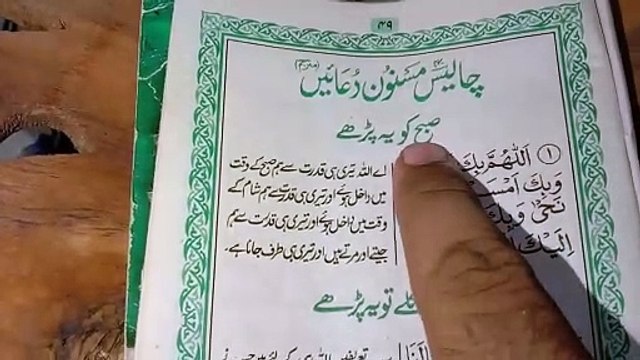 ۴۹
چالیس مسنون دُعائیں (مترجم)
صبح کو یہ پڑھے
① اَللّٰهُمَّ بِكَ
وَبِكَ اَمْسَ
نَحْیٰ وَبِكَ
اِلَيْكَ
اے اللہ تیری ہی قدرت سے ہم صبح کے وقت
میں داخل ہوئے اور تیری ہی قدرت سے ہم شام کے
وقت میں داخل ہوئے اور تیری ہی قدرت سے ہم
جیتے اور مرتے ہیں اور تیری ہی طرف جانا ہے۔
نکلے تو یہ پڑھے
سب تعریفیں اللہ ہی کے لئے ہیں جس نے